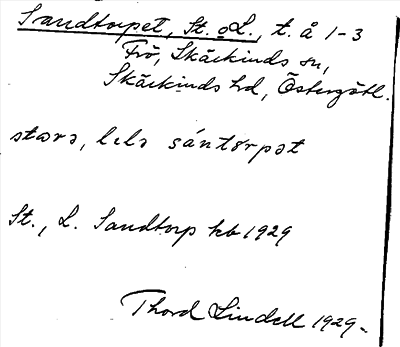 Sandtorpet, St. o L., t. å 1-3
Frö, Skärkinds sn,
Skärkinds hd, Östergötl.
stora, lela sántorpət
St., L. Sandtorp kb 1929
Thord Lindell 1929-